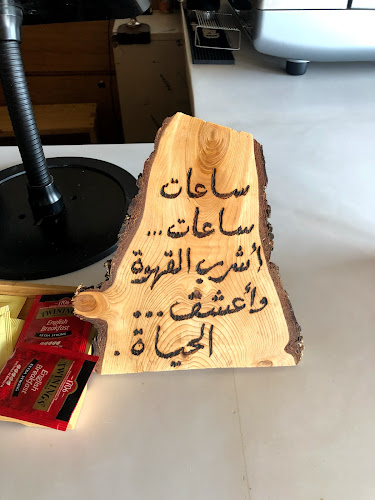 ساعات
ساعات...
أشرب القهوة
وأعشق...
الحياة.
TWININGS
English
Breakfast
TWININGS
English
Breakfast